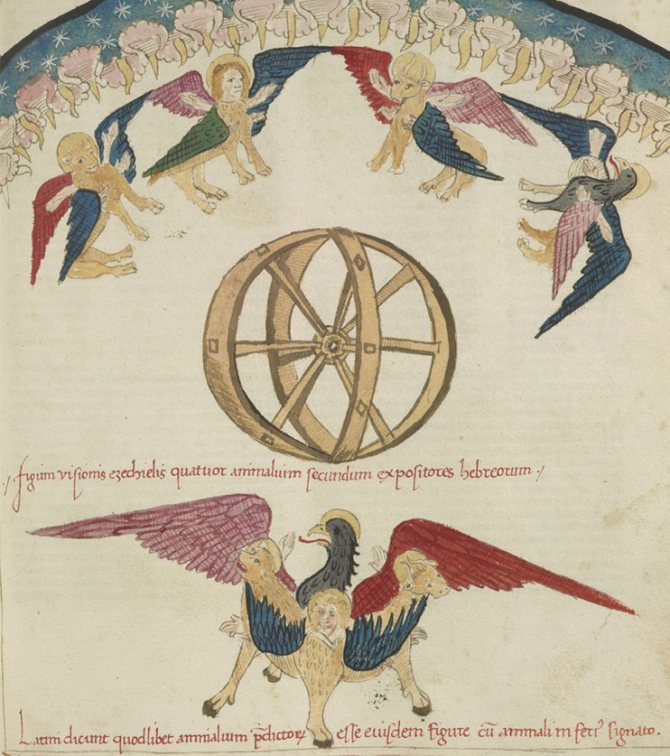 ./ figura visionis ezechielis quatuor animalium secundum expositores hebreorum ./
Latini dicunt quodlibet animalium p̄dictoꝝ esse eiusdem figure cū animali in